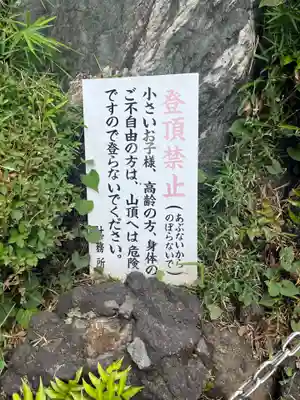 登頂禁止(あぶないからのぼらないで)
小さいお子様、高齢の方、身体の
ご不自由の方は、山頂へは危険
ですので登らないでください。
社務所